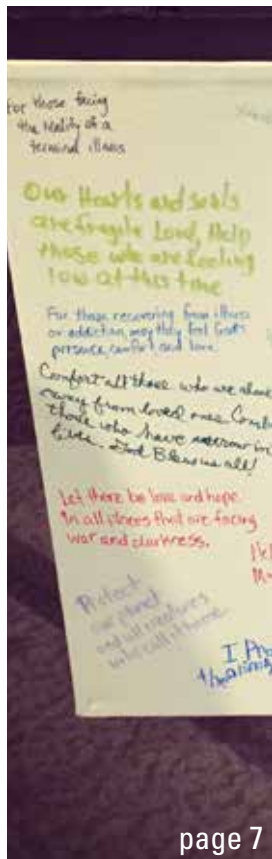 For those facing
the reality of a
terminal illness
Our Hearts and souls
are fragile Lord, Help
those who are feeling
low at this time
For those recovering from illness
or addiction, may they feel God's
presence, comfort and love
Comfort all those who are alone
away from loved ones
those who have sorrow in
God Bless us all!
Let there be love and hope
In all places that are facing
war and darkness.
Protect
our planet
and all creatures
who call it home.
I
page 7